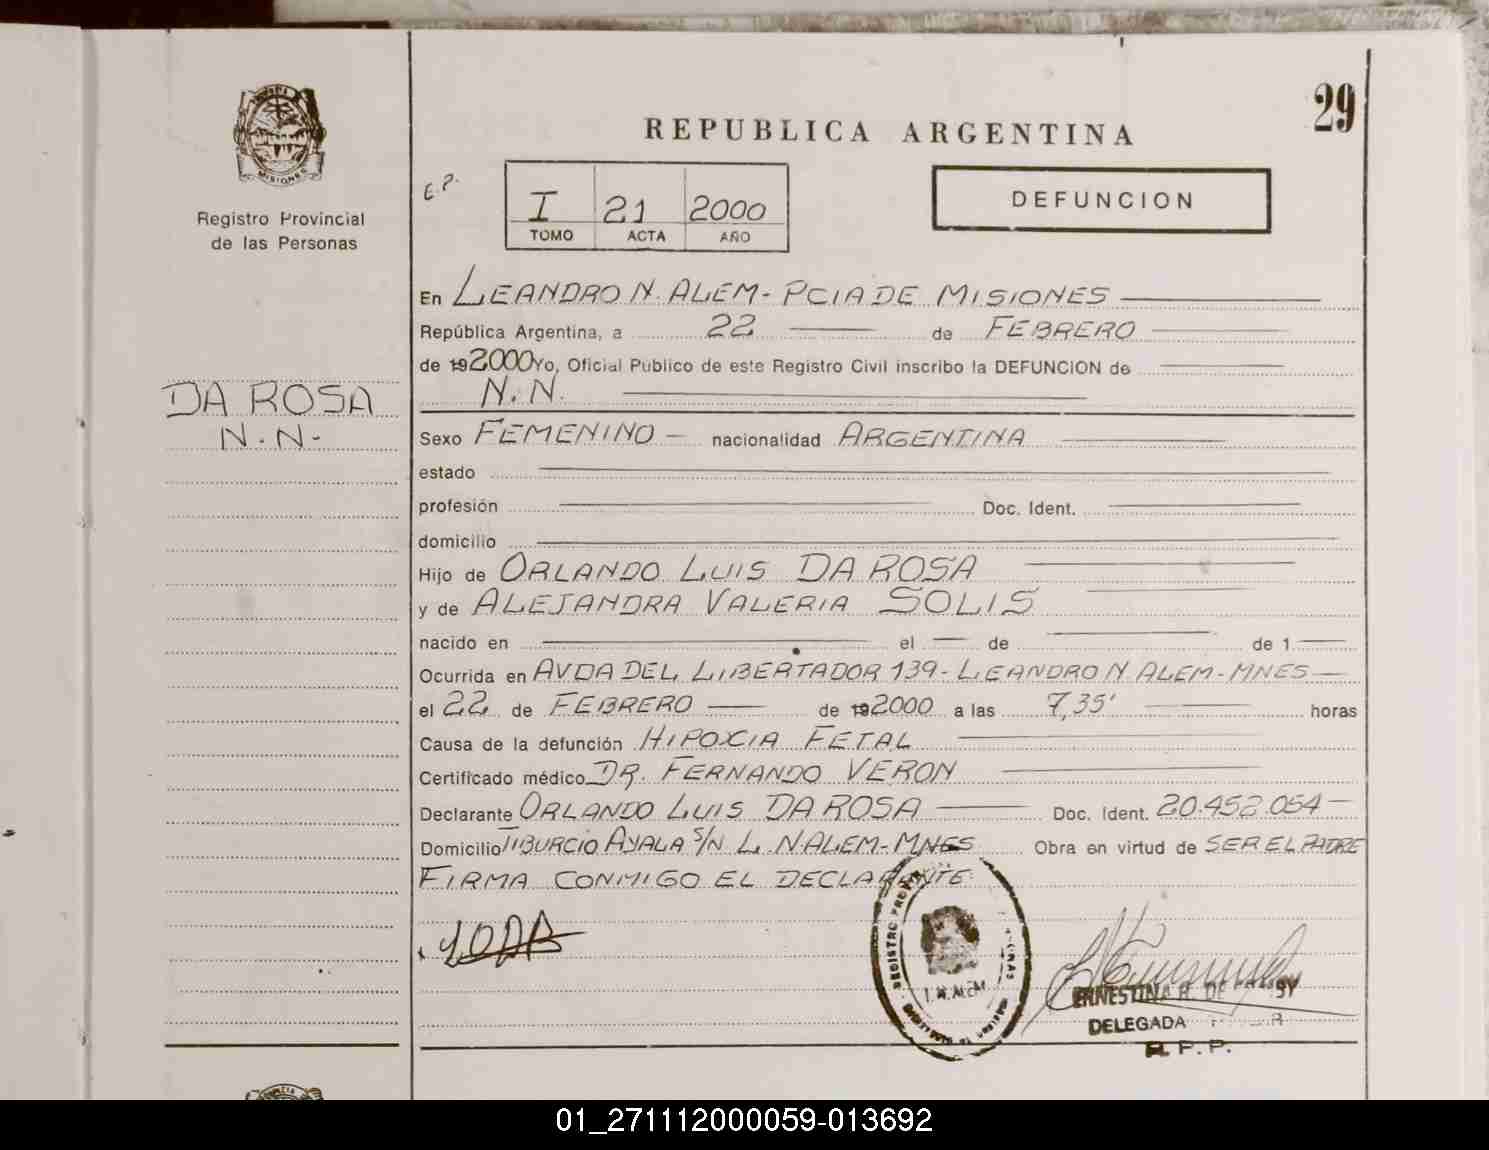 29
REPUBLICA ARGENTINA
MISIONES
Registro Provincial
de las Personas
E.P.
I 21 2000
TOMO ACTA AÑO
DEFUNCION
En LEANDRO N. ALEM - PCIA DE MISIONES
República Argentina, a 22 de FEBRERO
de 192000 Yo, Oficial Publico de este Registro Civil inscribo la DEFUNCION de
N.N.
DA ROSA
N.N.-
Sexo FEMENINO - nacionalidad ARGENTINA
estado
profesión Doc. Ident.
domicilio
Hijo de ORLANDO LUIS DA ROSA
y de ALEJANDRA VALERIA SOLIS
nacido en el de de 1
Ocurrida en AVDA DEL LIBERTADOR 139 - LEANDRO N. ALEM - MNES
el 22 de FEBRERO de 192000 a las 7,35' horas
Causa de la defunción HIPOXIA FETAL
Certificado médico DR. FERNANDO VERON
Declarante ORLANDO LUIS DA ROSA Doc. Ident. 20.452.054
Domicilio TIBURCIO AYALA S/N L. N ALEM - MNES Obra en virtud de SER EL PADRE
FIRMA CONMIGO EL DECLARANTE
REGISTRO PROV
L.N. ALEM
ERNESTINA R. DE
DELEGADA
R.P.P.
01_271112000059-013692